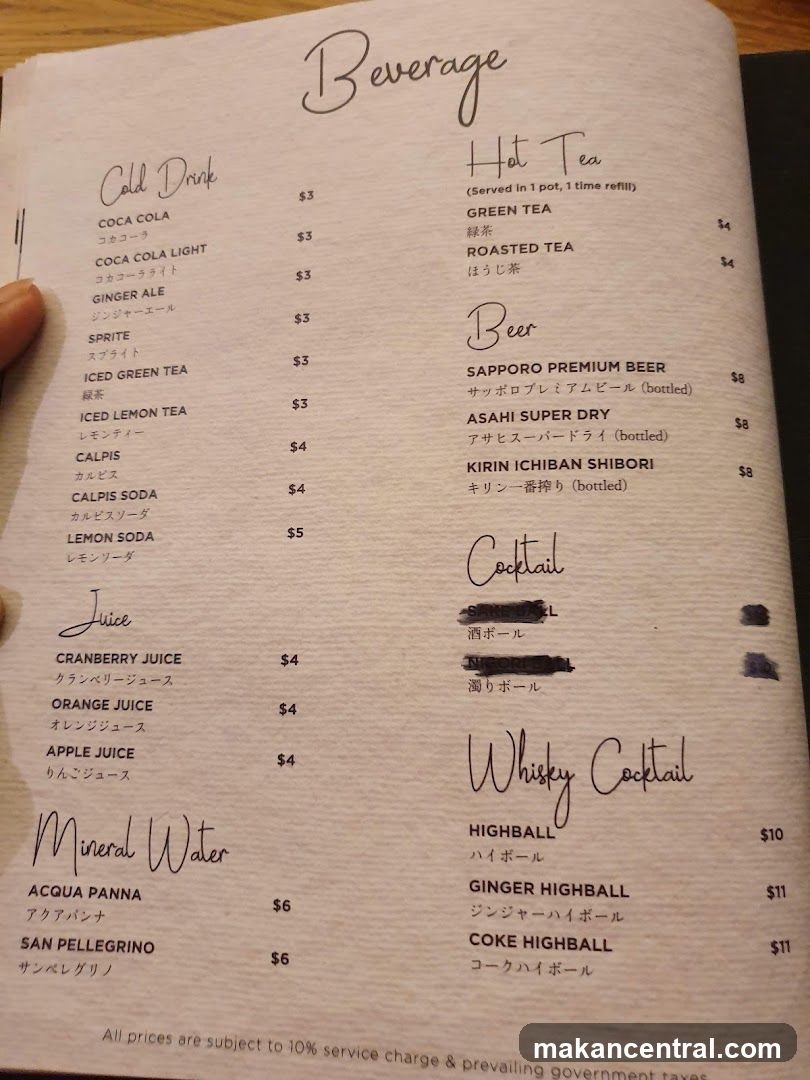 Beverage
Cold Drink
COCA COLA $3
コカコーラ
COCA COLA LIGHT $3
コカコーラライト
GINGER ALE $3
ジンジャーエール
SPRITE $3
スプライト
ICED GREEN TEA $3
緑茶
ICED LEMON TEA $3
レモンティー
CALPIS $4
カルピス
CALPIS SODA $4
カルピスソーダ
LEMON SODA $5
レモンソーダ
Juice
CRANBERRY JUICE $4
クランベリージュース
ORANGE JUICE $4
オレンジジュース
APPLE JUICE $4
りんごジュース
Mineral Water
ACQUA PANNA $6
アクアパンナ
SAN PELLEGRINO $6
サンペレグリノ
Hot Tea
(Served in 1 pot, 1 time refill)
GREEN TEA $4
緑茶
ROASTED TEA $4
ほうじ茶
Beer
SAPPORO PREMIUM BEER $8
サッポロプレミアムビール (bottled)
ASAHI SUPER DRY $8
アサヒスーパードライ (bottled)
KIRIN ICHIBAN SHIBORI $8
キリン一番搾り (bottled)
Cocktail
酒ボール
濁りボール
Whisky Cocktail
HIGHBALL $10
ハイボール
GINGER HIGHBALL $11
ジンジャーハイボール
COKE HIGHBALL $11
コークハイボール
All prices are subject to 10% service charge & prevailing government taxes
makancentral.com